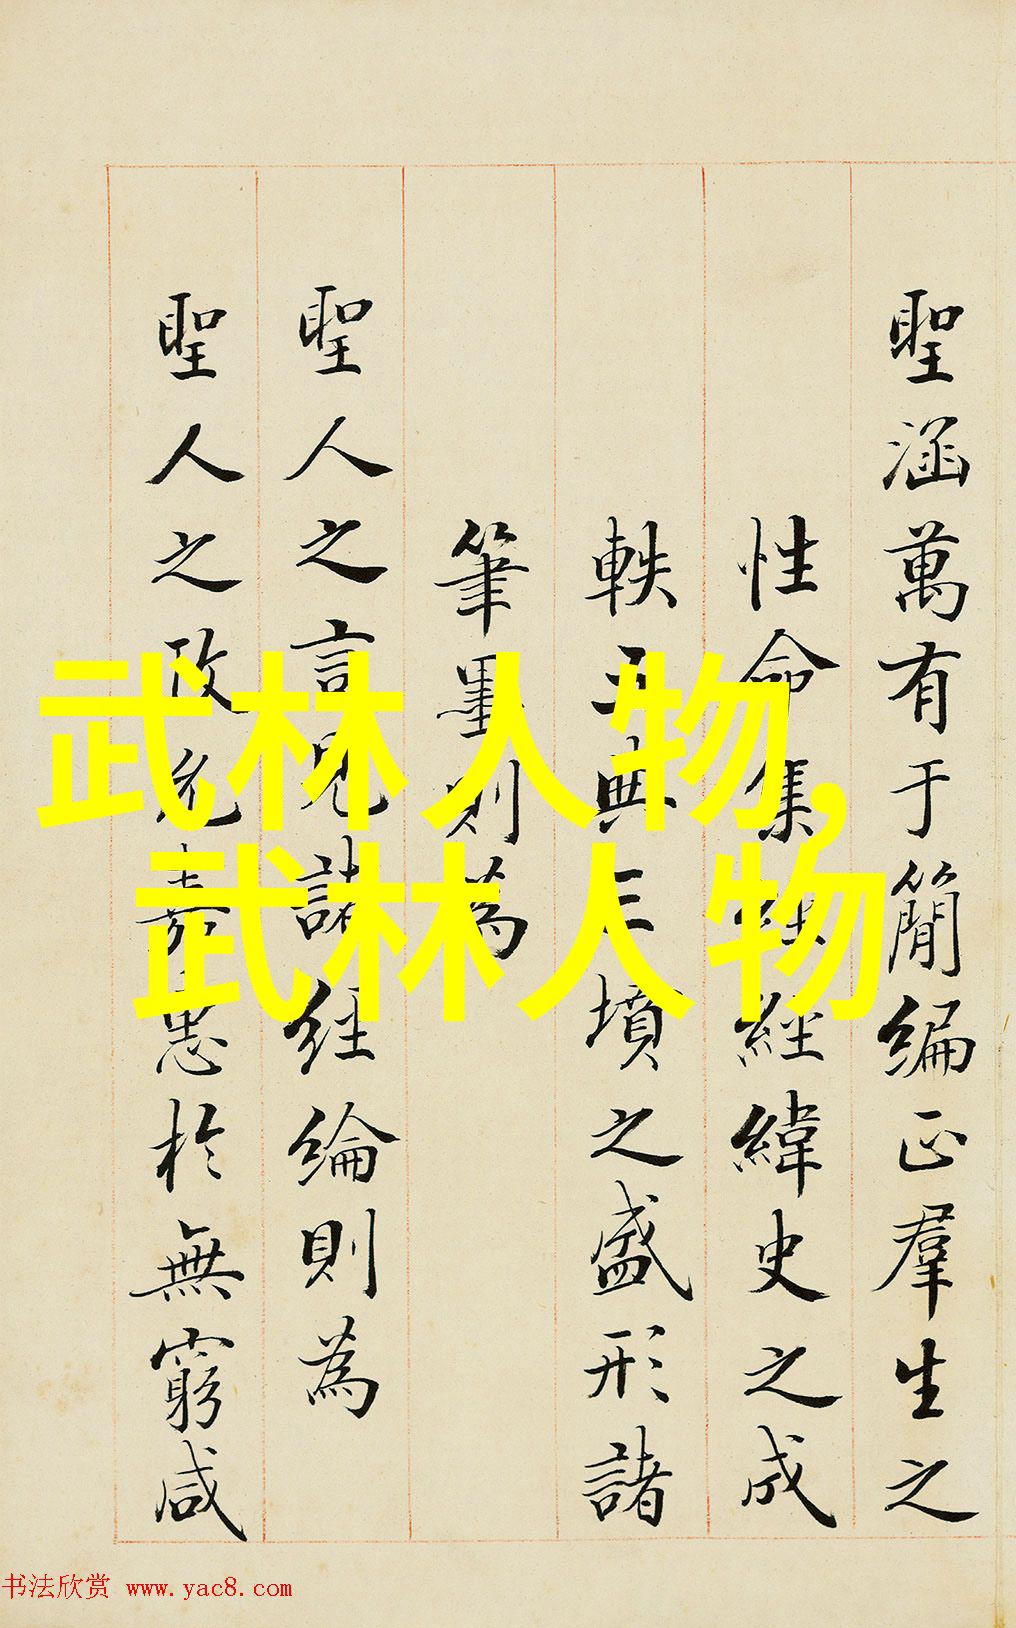 聖涵萬有于簡編正羣生之
性命集經緯史之成
軼五典三墳之盛形諸
筆墨則為
聖人之言見諸經綸則為
聖人之政允嘉惠於無窮咸
武林人物,
武林人物
书法欣赏 www.yac8.com